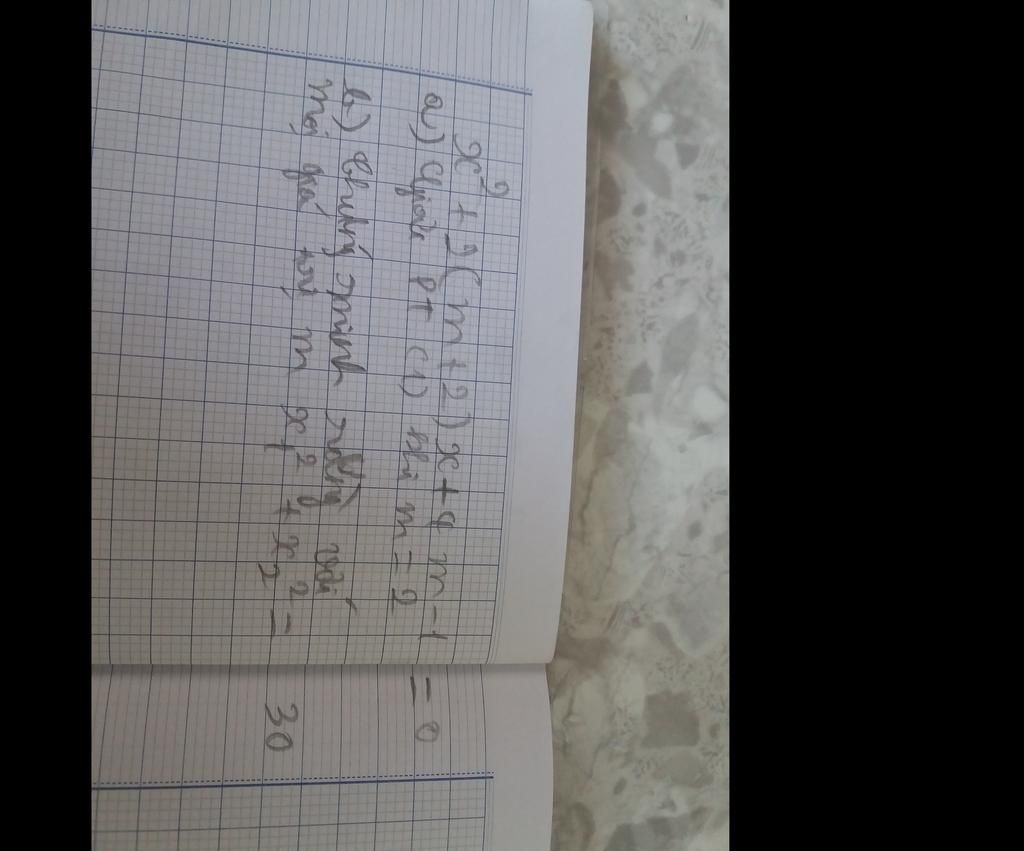 x² + 2(m+2)x + 4m-1 = 0
a) Giải pt (1) khi m = 2
b) Chứng minh rằng với
mọi giá trị m x₁² + x₂² = 30